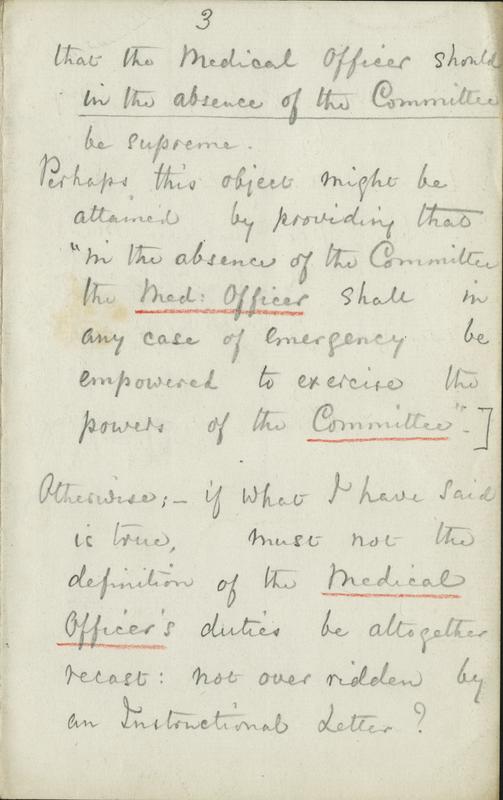 3
that the Medical Officer should
in the absence of the Committee
be supreme.
Perhaps this object might be
attained by providing that
"in the absence of the Committee
the Med: Officer shall in
any case of emergency be
empowered to exercise the
powers of the Committee".]
Otherwise; – if what I have said
is true, must not the
definition of the Medical
Officer's duties be altogether
recast: not over ridden by
an Instructional Letter?